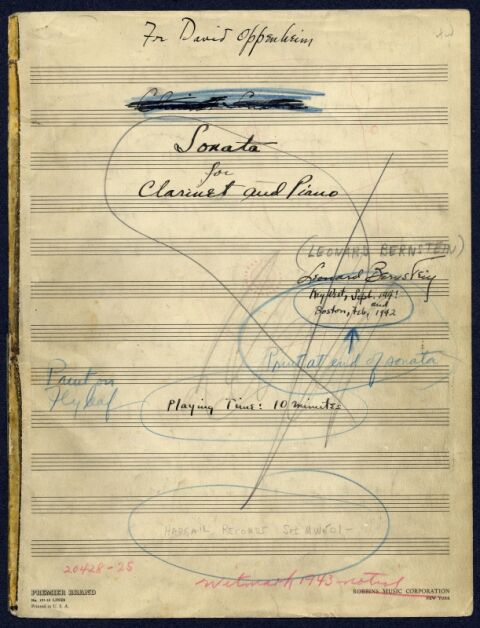 For David Oppenheim
Sonata
for
Clarinet and Piano
(LEONARD BERNSTEIN)
Leonard Bernstein
Key West, Sept. 1941
and
Boston, Feb. 1942
Print at end of sonata
Print on
Flyleaf
Playing Time: 10 minutes
HARGAIL RECORDS Set MW501-
20428-25
Witmark 1943 notice
PREMIER BRAND
Printed in U. S. A.
ROBBINS MUSIC CORPORATION
NEW YORK